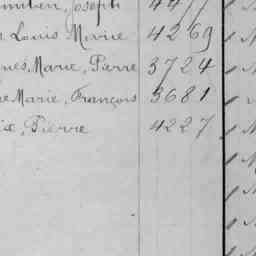 Joseph 4477
Louis Marie 4269
Marie, Pierre 3724
Marie, François 3681
Pierre 4227